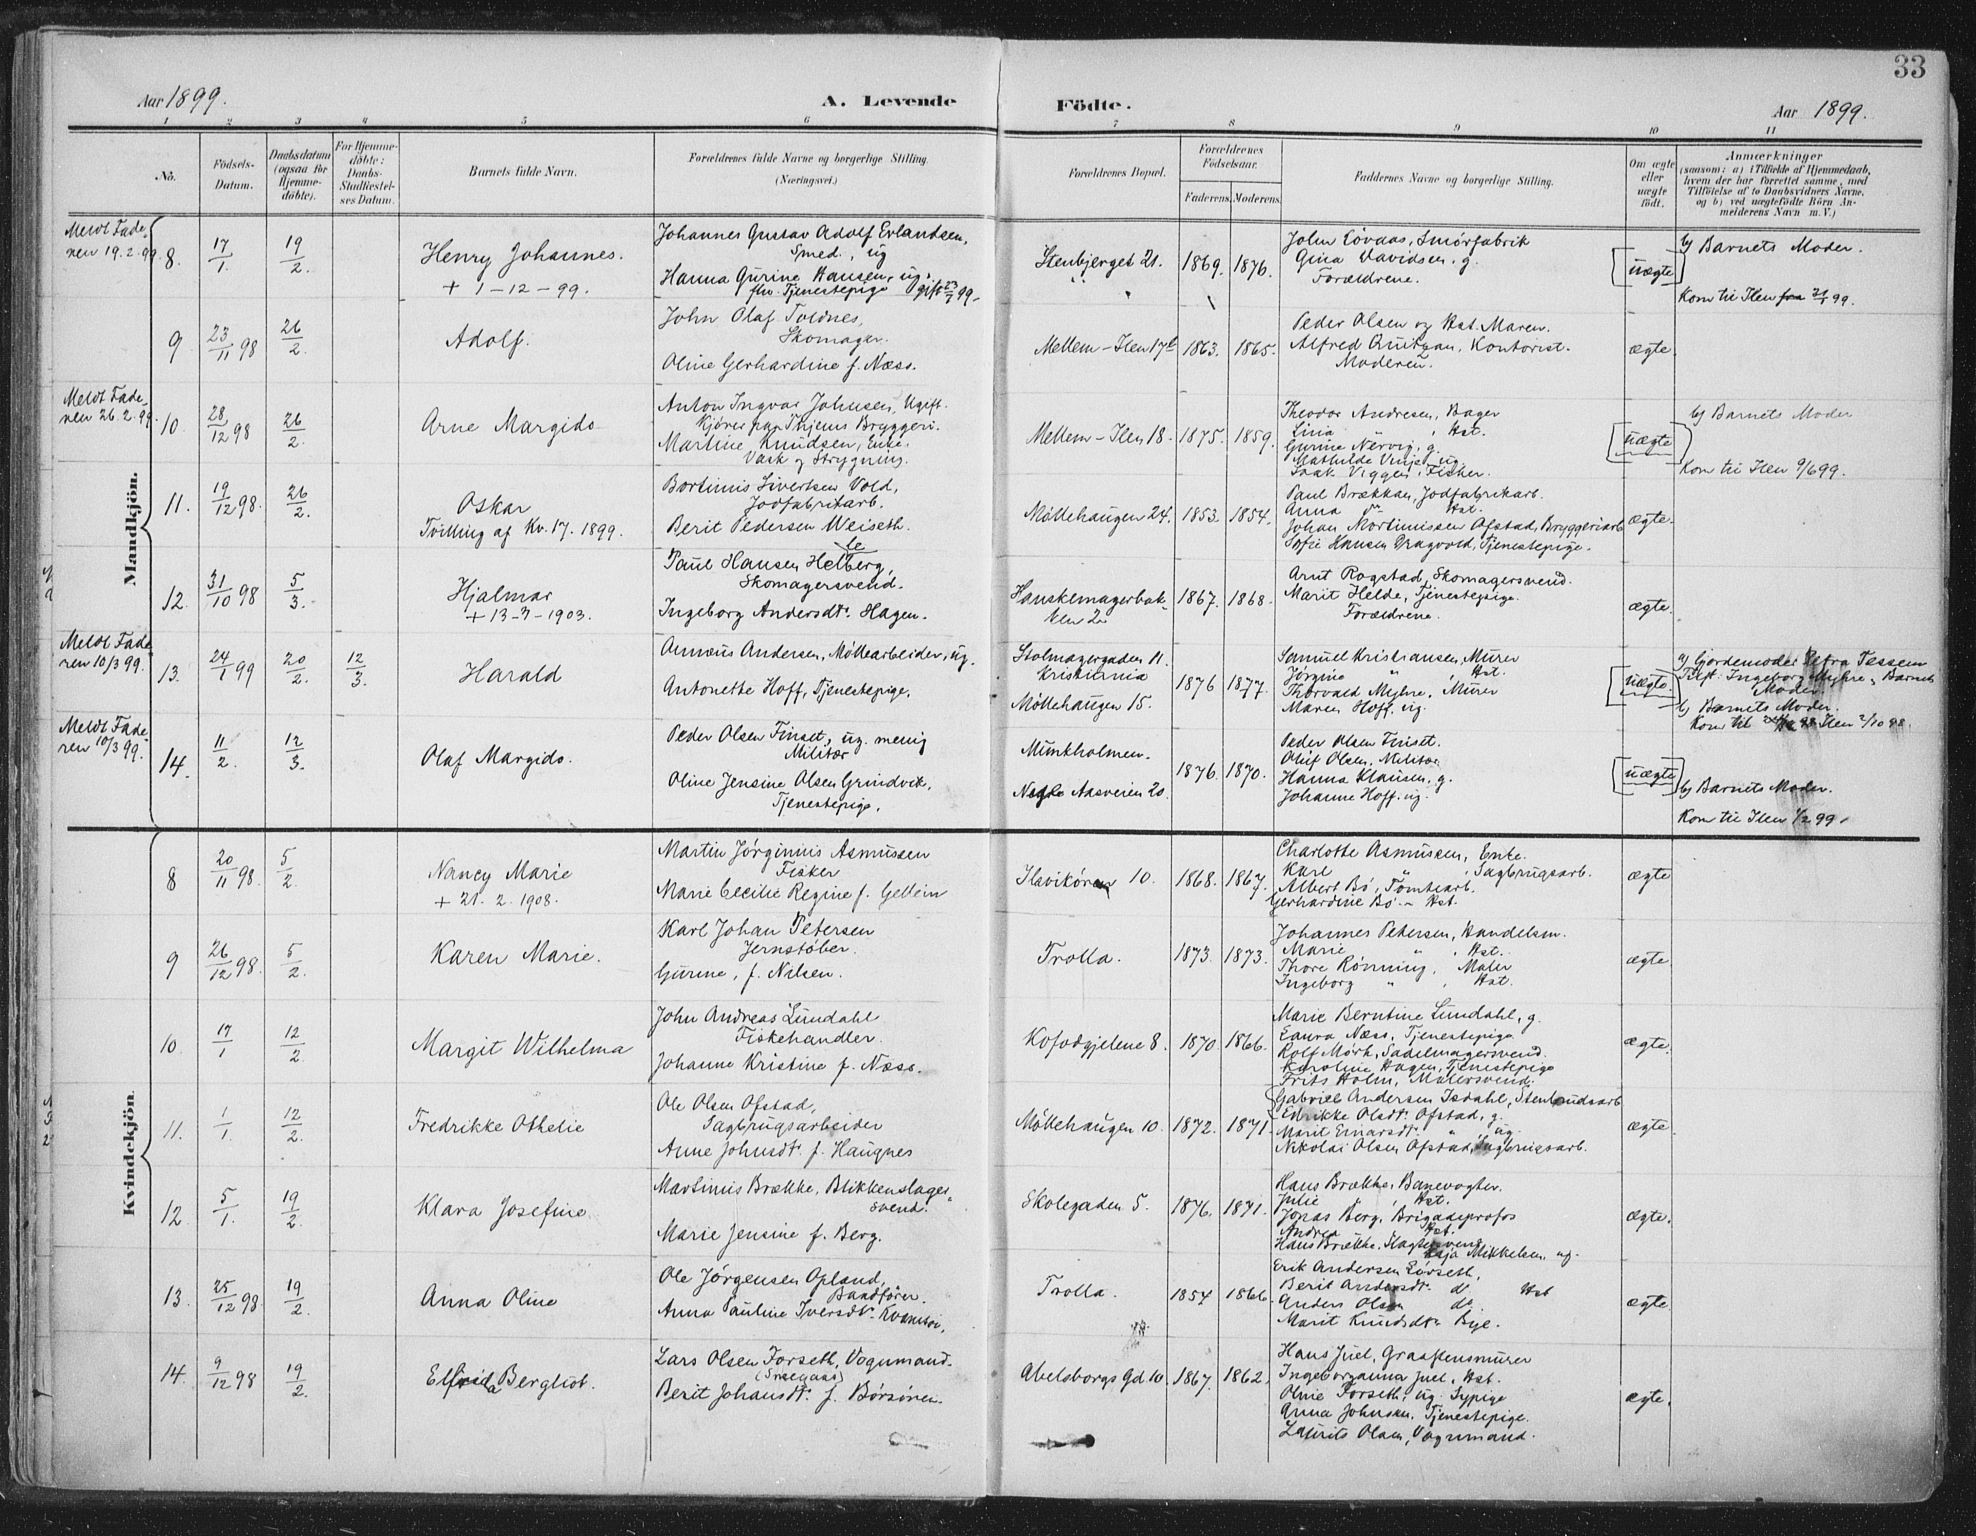 33
Aar 1899.
A. Levende
Födte.
Aar 1899.
1 2 3 4 5 6 7 8 9 10 11
No.
Födsels-Datum.
Daabsdatum (ogsaa for Hjemmedöbte).
For Hjemmedöbte: Daabs-Stadfæstelses Datum.
Barnets fulde Navn.
Forældrenes fulde Navne og borgerlige Stilling.
(Næringsvei.)
Forældrenes Bopæl.
Forældrenes Födselsaar.
Faderens. Moderens.
Faddernes Navne og borgerlige Stilling.
Om ægte eller uægte födt.
Anmærkninger
(saasom: a) i Tilfælde af Hjemmedaab, hvem der har forrettet samme, med Tilföielse af to Daabsvidners Navne, og b) ved uægtefödte Börn Anmelderens Navn m. V.)
Mandkjön.
Meldt Faderen 19.2.99.
8. 17/1. 19/2.
Henry Johannes.
+ 1-12-99.
Johannes Gustav Adolf Erlandsen,
Smed, ug
Hanna Gurine Hansen, ug.
fhv. Tjenestepige
Stenbjerget 21.
1869. 1876.
John Lövaas, Smørfabrik
Gina Davidsen, g.
Forældrene.
uægte
b) Barnets Moder.
Kom til Ilen
9. 23/11 98 26/2.
Adolf.
John Olaf Toldnes,
Skomager.
Oline Gerhardine f. Næss.
Mellem-Ilen 17b
1863. 1865.
Peder Olsen og Hst. Maren.
Alfred Kontorist.
Moderen.
ægte.
Meldt Faderen 26.2.99.
10. 28/12 98 26/2.
Arne Margido
Anton Ingvar Johnsen, Ugift.
Kjører paa Trhjems Bryggeri.
Martine Knudsen, Enke.
Vask og Strygning.
Mellem-Ilen 18.
1875. 1859.
Theodor Andresen, Bager
Lina " , Hst.
Gurine Nervig, g.
Mathilde Vinje ug.
Isak Viggen, Fisker.
uægte
b) Barnets Moder
Kom til Ilen 9/6 99.
11. 19/12 98. 26/2.
Oskar
Tvilling af Kv. 17. 1899.
Bortinus Sivertsen Vold,
Jodfabrikarb.
Berit Pedersen Weiseth.
Møllehaugen 24.
1853. 1854.
Paul Brækkan, Jodfabrikarb.
Anna do Hst.
Johan Mortinussen Ofstad, Bryggeriarb
Sofie Hansen Dragvold, Tjenestepige.
ægte.
12. 31/10 98 5/3.
Hjalmar
+ 13-7-1903.
Paul Hansen Helberg,
le
Skomagersvend.
Ingeborg Andersdt. Hagen.
Hanskemagerbakken 2
1867. 1868.
Arnt Rogstad, Skomagersvend.
Marit Helde, Tjenestepige.
Forældrene.
ægte.
Meldt Faderen 10/3 99.
13. 24/1 99 20/2. 12/3.
Harald
Annæus Andersen, Møllearbeider, ug.
Antonette Hoff, Tjenestepige.
Stolmagergaden 11.
Kristiania
Møllehaugen 15.
1876 1877.
Samuel Kristiansen, Murer
Jørgine " , Hst.
Thorvald Myhre, Murer
Maren Hoff. ug.
uægte.
a) Gjordemoder Petra Tessem
Tilst. Ingeborg Myhre, Barnets
Moder.
b) Barnets Moder.
Kom til Ilen 2/10 98.
Meldt Faderen 10/3 99.
14. 11/2. 12/3.
Olaf Margido.
Peder Olsen Finset, ug. menig
Militær
Oline Jensine Olsen Grindvik,
Tjenestepige.
Munkholmen.
Aasveien 20.
1876. 1870.
Peder Olsen Finset.
Oluf Olsen, Militær
Hanna Klausen, g.
Johanne Hoff. ug.
uægte
b) Barnets Moder.
Kom til Ilen 1/2 99.
Kvindekjön.
8 20/11 98. 5/2.
Nancy Marie
+ 21. 2. 1908.
Martin Jörginius Asmussen
Fisker
Marie Cecilie Regine f. Gellein
Ilsvikören 10.
1868. 1867.
Charlotte Asmussen, Enke.
Karl " , Sagbrugsarb.
Albert Bö, Tomtearb.
Gerhardine Bö - Hst.
ægte
9 26/12 98. 5/2.
Karen Marie.
Karl Johan Petersen
Jernstöber.
Gurine, f. Nilsen.
Trolla.
1873. 1873.
Johannes Petersen, Handelsm.
Marie " , Hst.
Thore Rönning, Maler
Ingeborg " , Hst.
ægte.
10. 17/1 12/2.
Margit Wilhelma
John Andreas Lundahl
Fiskehandler.
Johanne Kristine f. Næss.
Kofodgjelene 8.
1870. 1866.
Marie Berntine Lundahl, g.
Laura Næss, Tjenestepige
Rolf Mørk, Sadelmagersvend.
Karoline Hagen, Tjenestepige
Frits Holm, Malersvend.
ægte.
11. 1/1. 12/2.
Fredrikke Othelie
Ole Olsen Ofstad,
Sagbrugsarbeider
Anne Johnsdt. f. Haugnes
Møllehaugen 10.
1872. 1871.
Gabriel Andersen Isdahl, Stenbrudsarb
Edrikke Olsdt. Ofstad, g.
Marit Einarsdt. " ug.
Nikolai Olsen Ofstad, Sagbrugsarb.
ægte.
12. 5/1. 19/2.
Klara Josefine.
Martinus Brække, Blikkenslagersvend.
Marie Jensine f. Berg.
Skolegaden 5.
1876. 1871.
Hans Brække, Banevogter.
Julie " , Hst.
Jonas Berg, Brigadeprofos
Andrea Hst.
Hans Brække,
Mikkelsen, ug.
ægte.
13. 25/12 98. 19/2.
Anna Oline
Ole Jörgensen Opland,
Baadfører.
Anna Pauline Iversdt.
Trolla.
1854 1866.
Erik Andersen Lörseth,
Berit Andersdt. do Hst
Anders Olsen do.
Marit Knudsdt. Bye.
ægte.
14. 9/12 98 19/2.
Elfrida Bergliot.
Lars Olsen Forseth, Vognmand.
Berit Johansdt. f. Börsönen.
Abelsborgs Gd 10.
1867. 1862.
Hans Juel, Graastensmurer
Ingeborganna Juel, Hst.
Oline Forseth, ug. Sypige
Anna Johnsen, Tjenestepige.
Laurits Olsen, Vognmand.
ægte.